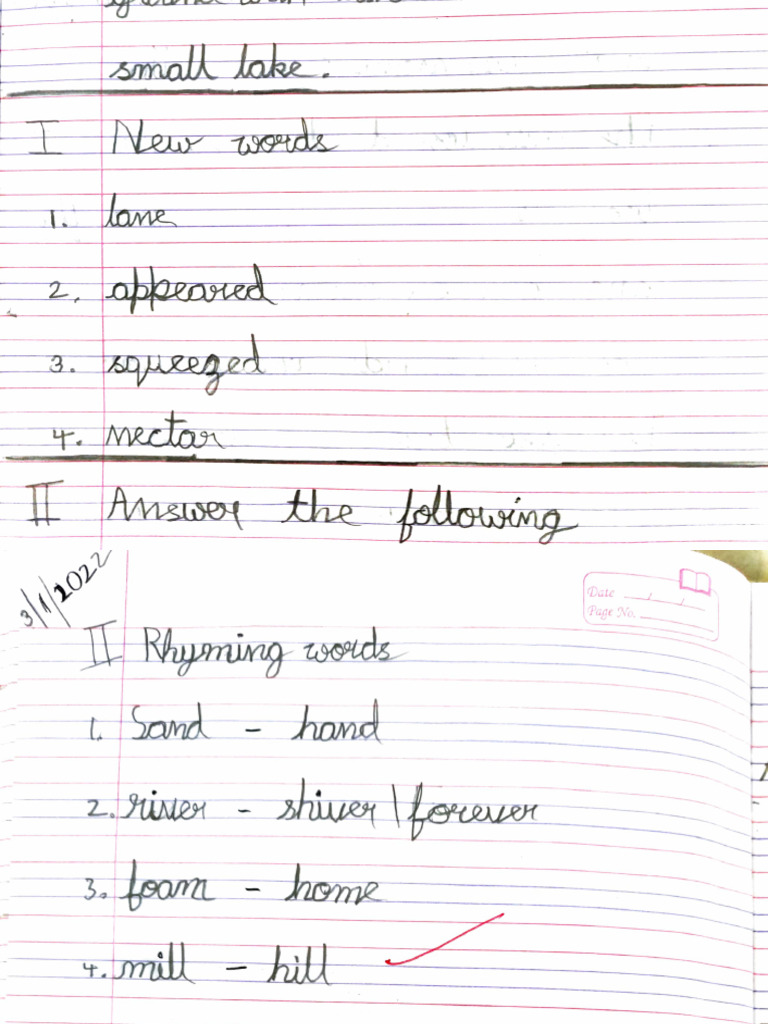 small lake.
I New words
1. lane
2. appeared
3. squeezed
4. nectar
II Answer the following
3/1/2022
Date / /
Page No.
II Rhyming words
1. Sand - hand
2. river - shiver \ forever
3. foam - home
4. mill - hill